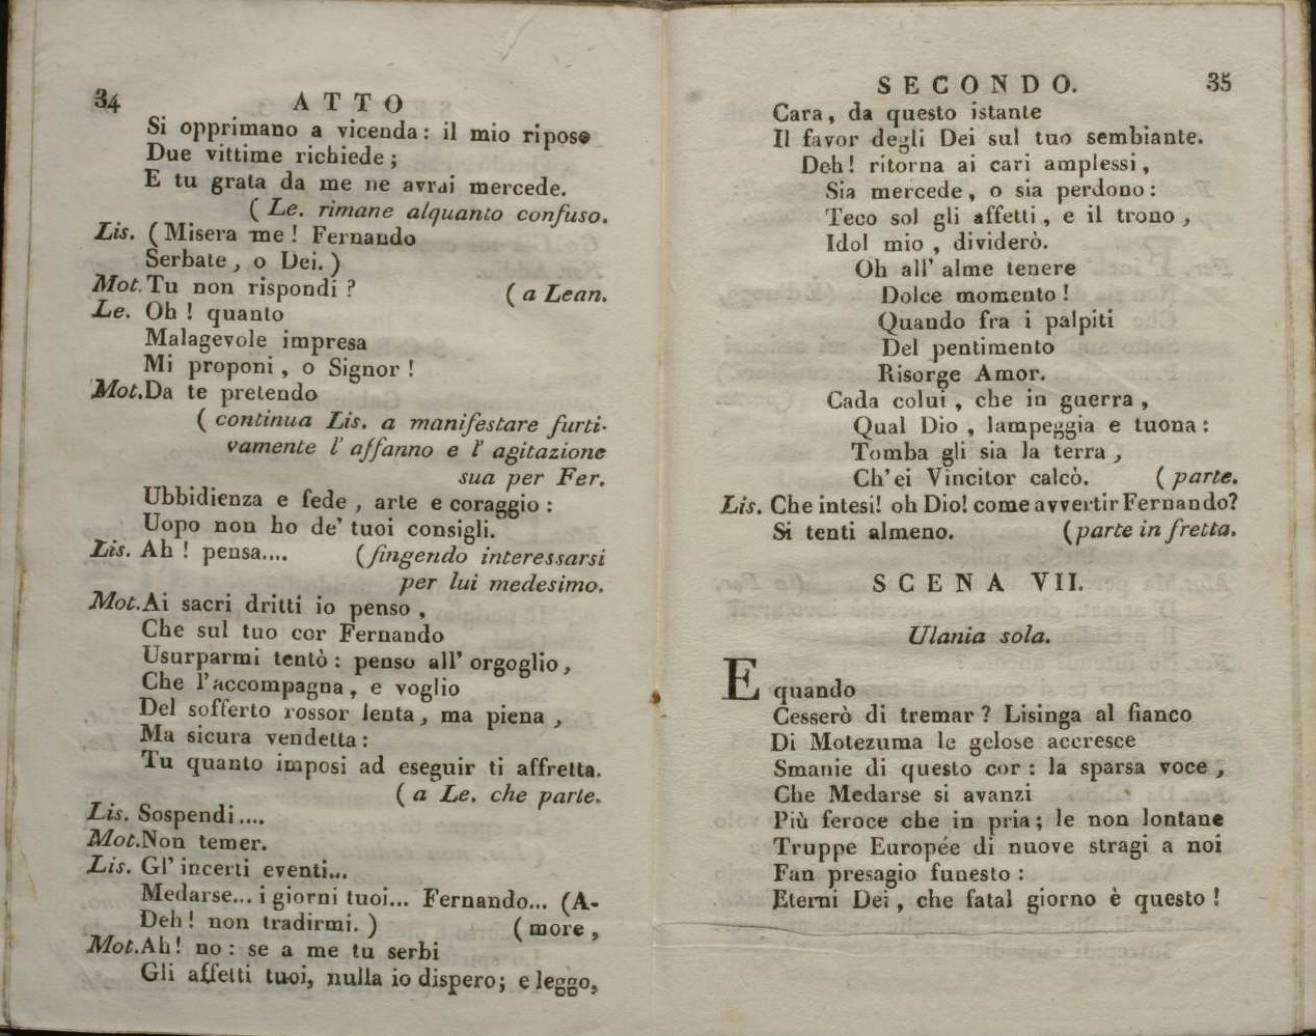 34 ATTO
Si opprimano a vicenda: il mio riposo
Due vittime richiede;
E tu grata da me ne avrai mercede.
( Le. rimane alquanto confuso.
Lis. ( Misera me! Fernando
Serbate, o Dei. )
Mot. Tu non rispondi? ( a Lean.
Le. Oh! quanto
Malagevole impresa
Mi proponi, o Signor!
Mot. Da te pretendo
( continua Lis. a manifestare furti-
vamente l' affanno e l' agitazione
sua per Fer.
Ubbidienza e fede, arte e coraggio:
Uopo non ho de' tuoi consigli.
Lis. Ah! pensa.... (fingendo interessarsi
per lui medesimo.
Mot. Ai sacri dritti io penso,
Che sul tuo cor Fernando
Usurparmi tentò: penso all' orgoglio,
Che l'accompagna, e voglio
Del sofferto rossor lenta, ma piena,
Ma sicura vendetta:
Tu quanto imposi ad eseguir ti affretta.
( a Le. che parte.
Lis. Sospendi....
Mot. Non temer.
Lis. Gl' incerti eventi...
Medarse... i giorni tuoi... Fernando... (A-
Deh! non tradirmi. ) ( more,
Mot. Ah! no: se a me tu serbi
Gli affetti tuoi, nulla io dispero; e leggo,
SECONDO. 35
Cara, da questo istante
Il favor degli Dei sul tuo sembiante.
Deh! ritorna ai cari amplessi,
Sia mercede, o sia perdono:
Teco sol gli affetti, e il trono,
Idol mio, dividerò.
Oh all' alme tenere
Dolce momento!
Quando fra i palpiti
Del pentimento
Risorge Amor.
Cada colui, che in guerra,
Qual Dio, lampeggia e tuona:
Tomba gli sia la terra,
Ch' ei Vincitor calcò. ( parte.
Lis. Che intesi! oh Dio! come avvertir Fernando?
Si tenti almeno. (parte in fretta.
SCENA VII.
Ulania sola.
E quando
Cesserò di tremar? Lisinga al fianco
Di Motezuma le gelose accresce
Smanie di questo cor: la sparsa voce,
Che Medarse si avanzi
Più feroce che in pria; le non lontane
Truppe Europée di nuove stragi a noi
Fan presagio funesto:
Eterni Dei, che fatal giorno è questo!